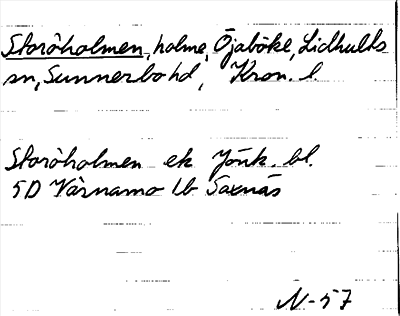 Storöholmen, holme, Öjaböke, Lidhults
sn, Sunnerbo hd, Kron. l.
Storöholmen ek Jönk. bl.
5D Värnamo 1b Saxnäs
N-57